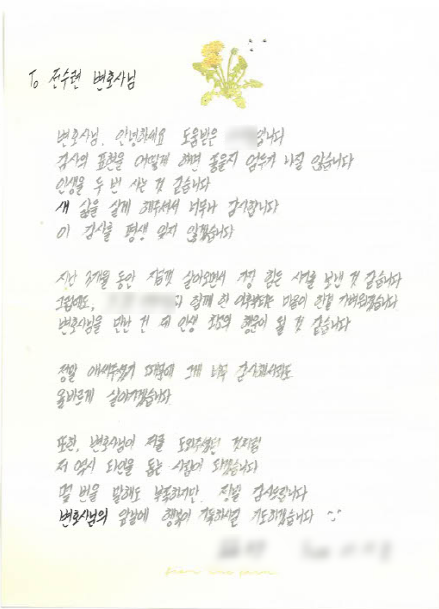 To 전수련 변호사님
변호사님, 안녕하세요 도움받은 입니다
감사의 표현을 어떻게 하면 좋을지 엄두가 나질 않습니다
인생을 두 번 사는 것 같습니다
새 삶을 살게 해주셔서 너무나 감사합니다
이 감사를 평생 잊지 않겠습니다
지난 3개월 동안 지금껏 살아오면서 가장 힘든 시기를 보낸 것 같습니다
그럼에도, 함께 한 이후부터는 마음이 한결 가벼워졌습니다
변호사님을 만난 건 제 인생 최고의 행운이 될 것 같습니다
정말 애써주셨기 때문에 그게 너무 감사해서라도
올바르게 살아가겠습니다
또한, 변호사님이 저를 도와주셨던 것처럼
저 역시 타인을 돕는 사람이 되겠습니다
몇 번을 말해도 부족하지만, 정말 감사드립니다
변호사님의 앞날에 행복이 가득하시길 기도하겠습니다